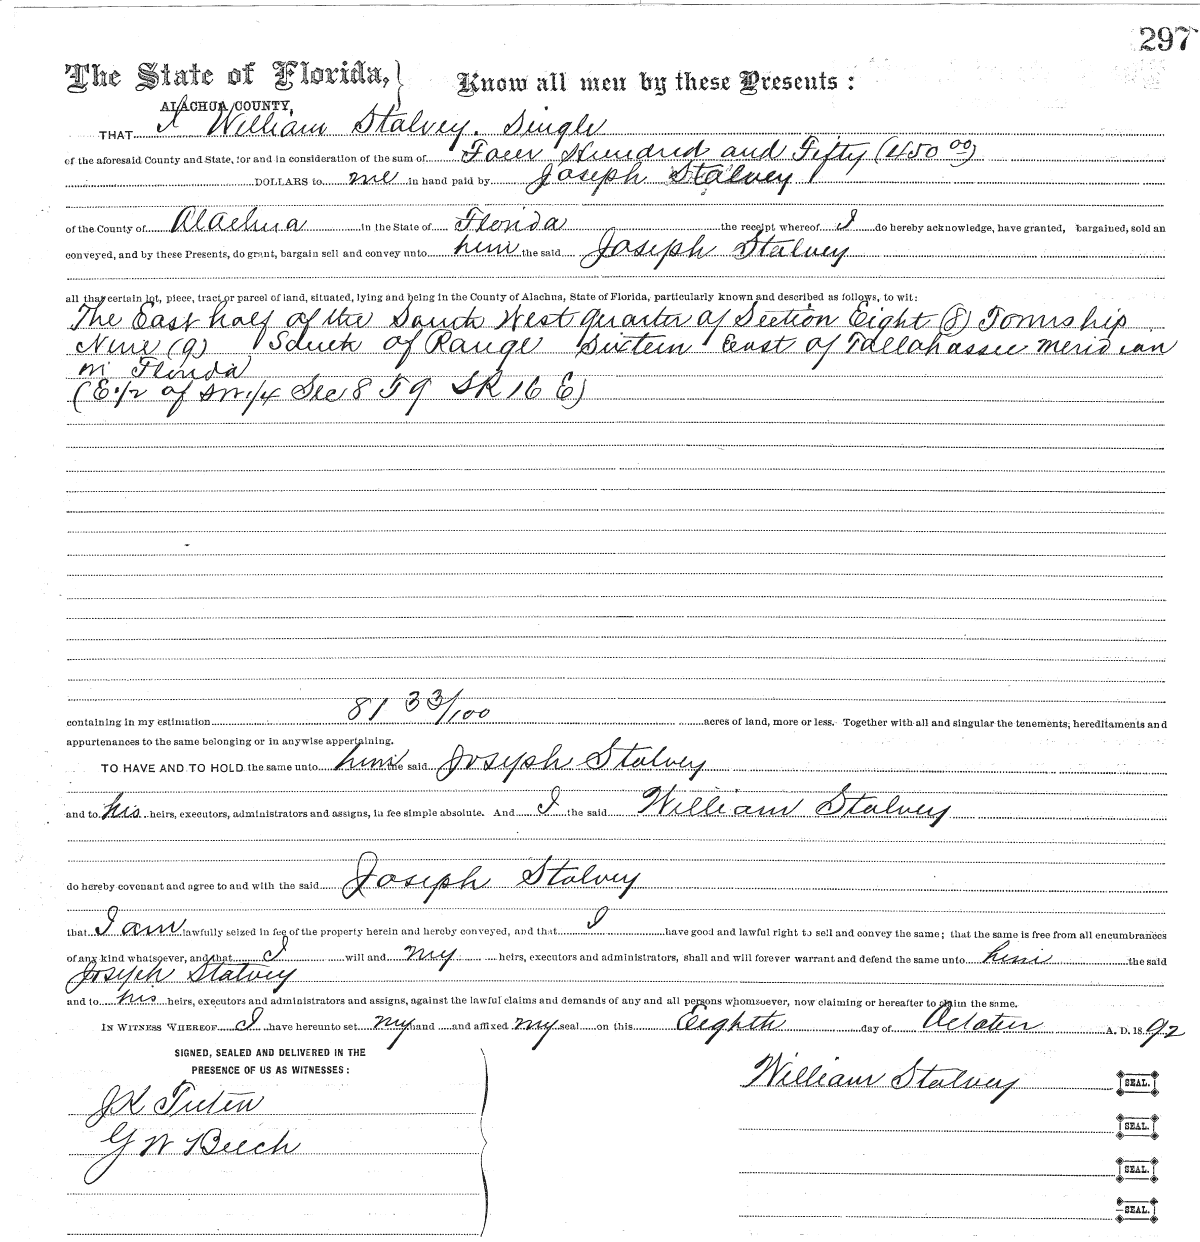 297
The State of Florida, } Know all men by these Presents :
ALACHUA COUNTY,
THAT I William Stalvey. Single
of the aforesaid County and State, for and in consideration of the sum of Four Hundred and Fifty (450 00)
DOLLARS to me in hand paid by Joseph Stalvey
of the County of Alachua in the State of Florida the receipt whereof I do hereby acknowledge, have granted, bargained, sold an
conveyed, and by these Presents, do grant, bargain sell and convey unto him the said Joseph Stalvey
all that certain lot, piece, tract or parcel of land, situated, lying and being in the County of Alachua, State of Florida, particularly known and described as follows, to wit:
The East half of the South West quarter of Section Eight (8) Township
Nine (9) South of Range Sixteen East of Tallahassee meridian
in Florida
(E 1/2 of SW 1/4 Sec 8 T 9 S R 16 E)
containing in my estimation 81 33/100 acres of land, more or less. Together with all and singular the tenements; hereditaments and
appurtenances to the same belonging or in anywise appertaining.
TO HAVE AND TO HOLD the same unto him the said Joseph Stalvey
and to his heirs, executors, administrators and assigns, in fee simple absolute. And I the said William Stalvey
do hereby covenant and agree to and with the said Joseph Stalvey
that I am lawfully seized in fee of the property herein and hereby conveyed, and that I have good and lawful right to sell and convey the same; that the same is free from all encumbrances
of any kind whatsoever, and that I will and my heirs, executors and administrators, shall and will forever warrant and defend the same unto him the said
Joseph Stalvey
and to his heirs, executors and administrators and assigns, against the lawful claims and demands of any and all persons whomsoever, now claiming or hereafter to claim the same.
IN WITNESS WHEREOF I have hereunto set my hand and affixed my seal on this Eighth day of October A. D. 18 92
SIGNED, SEALED AND DELIVERED IN THE
PRESENCE OF US AS WITNESSES :
William Stalvey SEAL.
J K Tuten
SEAL.
G W Beech
SEAL.
SEAL.